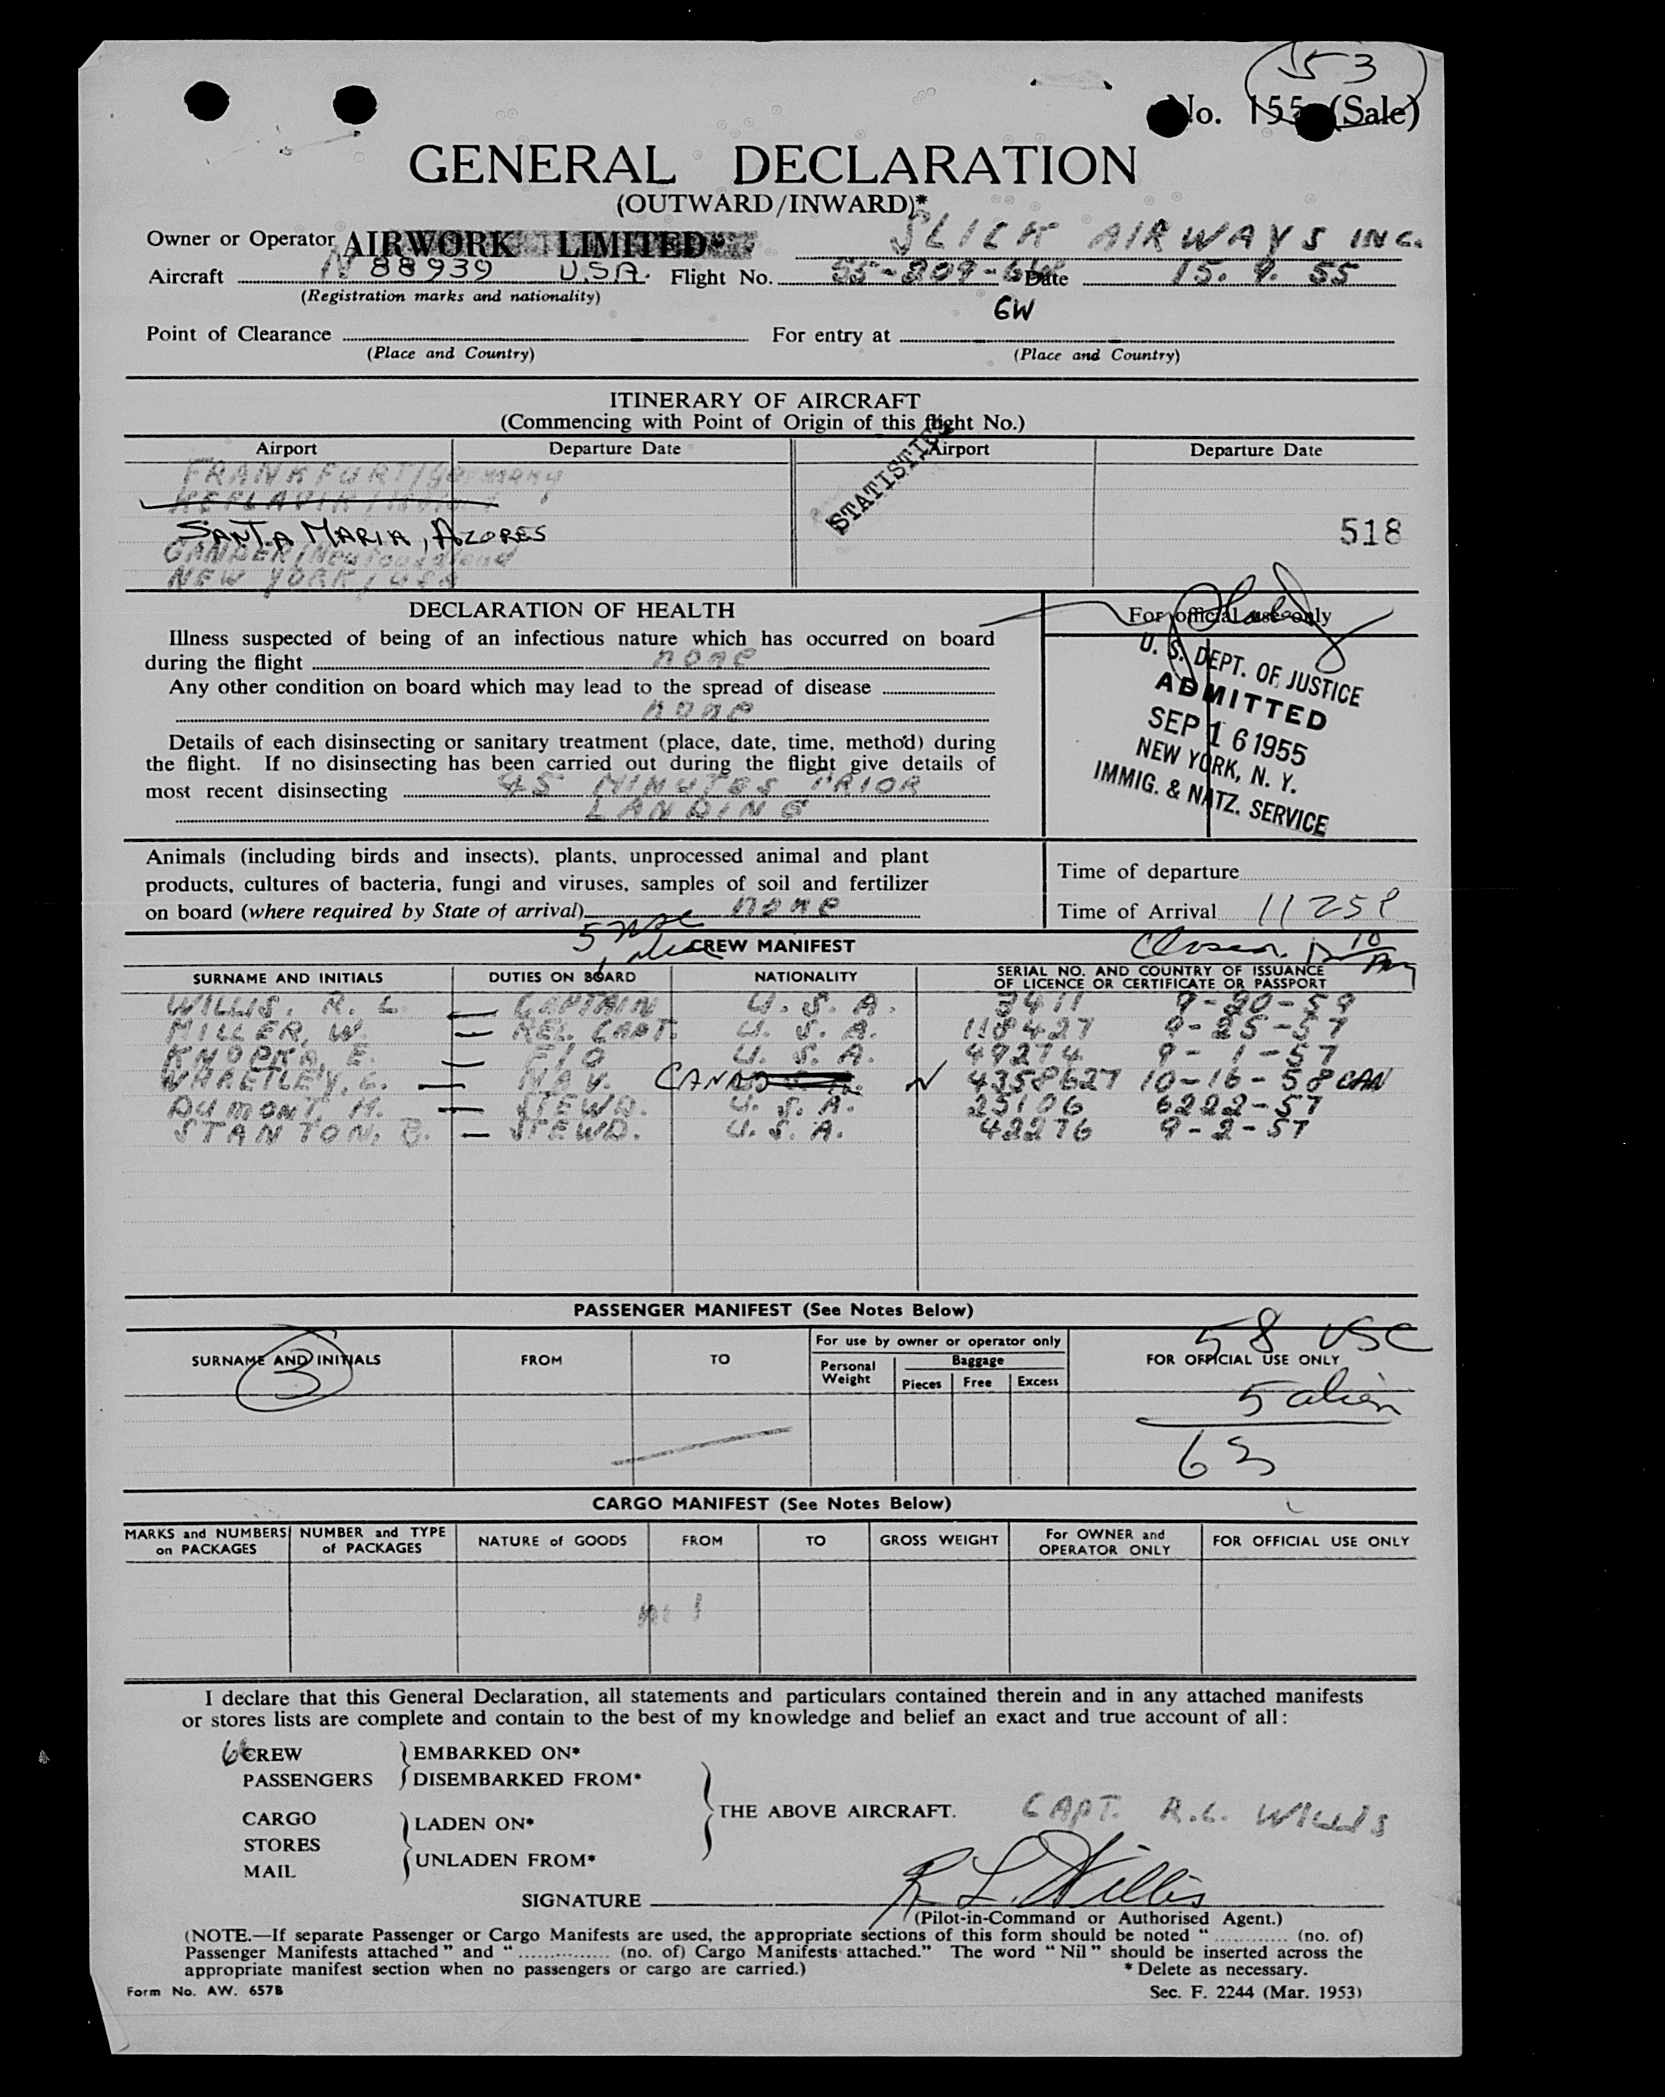 53
No. 155 (Sale)
GENERAL DECLARATION
(OUTWARD/INWARD)*
Owner or Operator AIRWORK LIMITED SLICK AIRWAYS INC.
Aircraft N 88939 U.S.A. Flight No. 55-209-6W Date 15. 9. 55
(Registration marks and nationality)
6W
Point of Clearance For entry at
(Place and Country) (Place and Country)
ITINERARY OF AIRCRAFT
(Commencing with Point of Origin of this flight No.)
Airport Departure Date Airport Departure Date
STATISTICS
FRANKFURT/Germany
KEFLAVIK/
SANTA MARIA, AZORES 518
GANDER/Newfoundland
NEW YORK/USA
DECLARATION OF HEALTH
For official use only
Illness suspected of being of an infectious nature which has occurred on board
during the flight none
Any other condition on board which may lead to the spread of disease
none
Details of each disinsecting or sanitary treatment (place, date, time, method) during
the flight. If no disinsecting has been carried out during the flight give details of
most recent disinsecting 45 MINUTES PRIOR
LANDING
U. S. DEPT. OF JUSTICE
ADMITTED
SEP 16 1955
NEW YORK, N. Y.
IMMIG. & NATZ. SERVICE
Animals (including birds and insects), plants, unprocessed animal and plant
products, cultures of bacteria, fungi and viruses, samples of soil and fertilizer
on board (where required by State of arrival) none
Time of departure
Time of Arrival 1125P
5 USC
1 alien
CREW MANIFEST
SURNAME AND INITIALS DUTIES ON BOARD NATIONALITY SERIAL NO. AND COUNTRY OF ISSUANCE
OF LICENCE OR CERTIFICATE OR PASSPORT
WILLIS, R. L. CAPTAIN U. S. A. 3411 9-20-59
MILLER, W. REL. CAPT. U. S. A. 118427 9-25-57
KNOPKA, E. F/O U. S. A. 49274 9-1-57
WHAETLEY, G. NAV. CANAD 4358627 10-16-58 CAN
DUMONT, M. STEWD. U. S. A. 25106 6222-57
STANTON, B. STEWD. U. S. A. 42276 9-2-57
PASSENGER MANIFEST (See Notes Below)
SURNAME AND INITIALS FROM TO For use by owner or operator only FOR OFFICIAL USE ONLY
Personal Weight Baggage
Pieces Free Excess
3
58 USC
5 alien
63
CARGO MANIFEST (See Notes Below)
MARKS and NUMBERS on PACKAGES NUMBER and TYPE of PACKAGES NATURE of GOODS FROM TO GROSS WEIGHT For OWNER and OPERATOR ONLY FOR OFFICIAL USE ONLY
nil
I declare that this General Declaration, all statements and particulars contained therein and in any attached manifests
or stores lists are complete and contain to the best of my knowledge and belief an exact and true account of all:
6 CREW EMBARKED ON*
PASSENGERS DISEMBARKED FROM*
THE ABOVE AIRCRAFT. CAPT. R.L. WILLIS
CARGO LADEN ON*
STORES
MAIL UNLADEN FROM*
SIGNATURE R L. Willis
(Pilot-in-Command or Authorised Agent.)
(NOTE.—If separate Passenger or Cargo Manifests are used, the appropriate sections of this form should be noted “ ............ (no. of)
Passenger Manifests attached” and “ ............... (no. of) Cargo Manifests attached.” The word “Nil” should be inserted across the
appropriate manifest section when no passengers or cargo are carried.) * Delete as necessary.
Form No. AW. 657B Sec. F. 2244 (Mar. 1953)